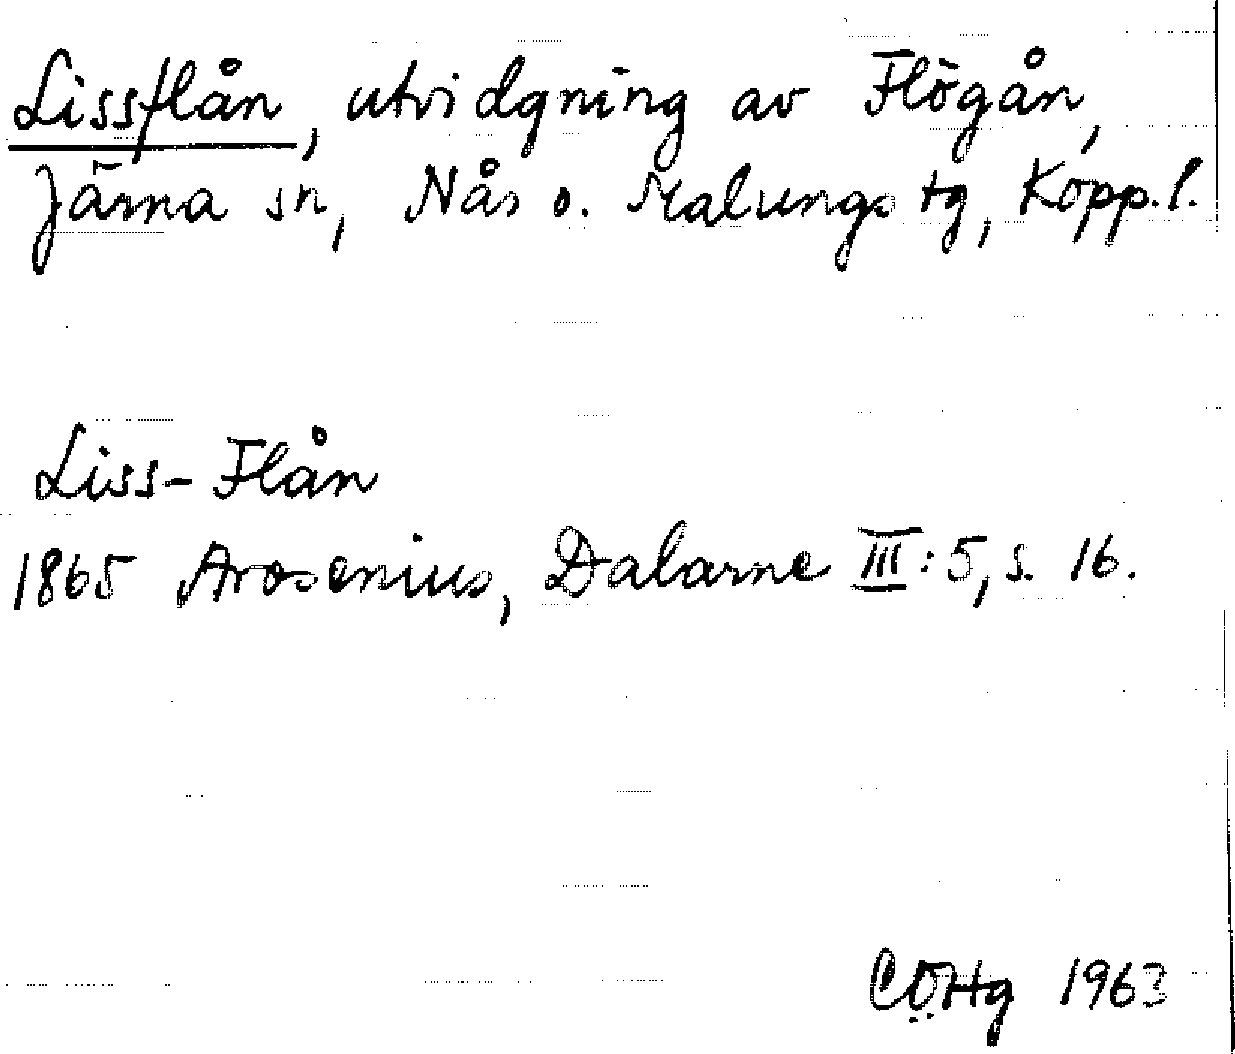 Lissflån, utvidgning av Flögån,
Järna sn, Nås o. Malungs tg, Kopp.l.
Liss-Flån
1865 Arosenius, Dalarne III:5, s. 16.
CÖHg 1963